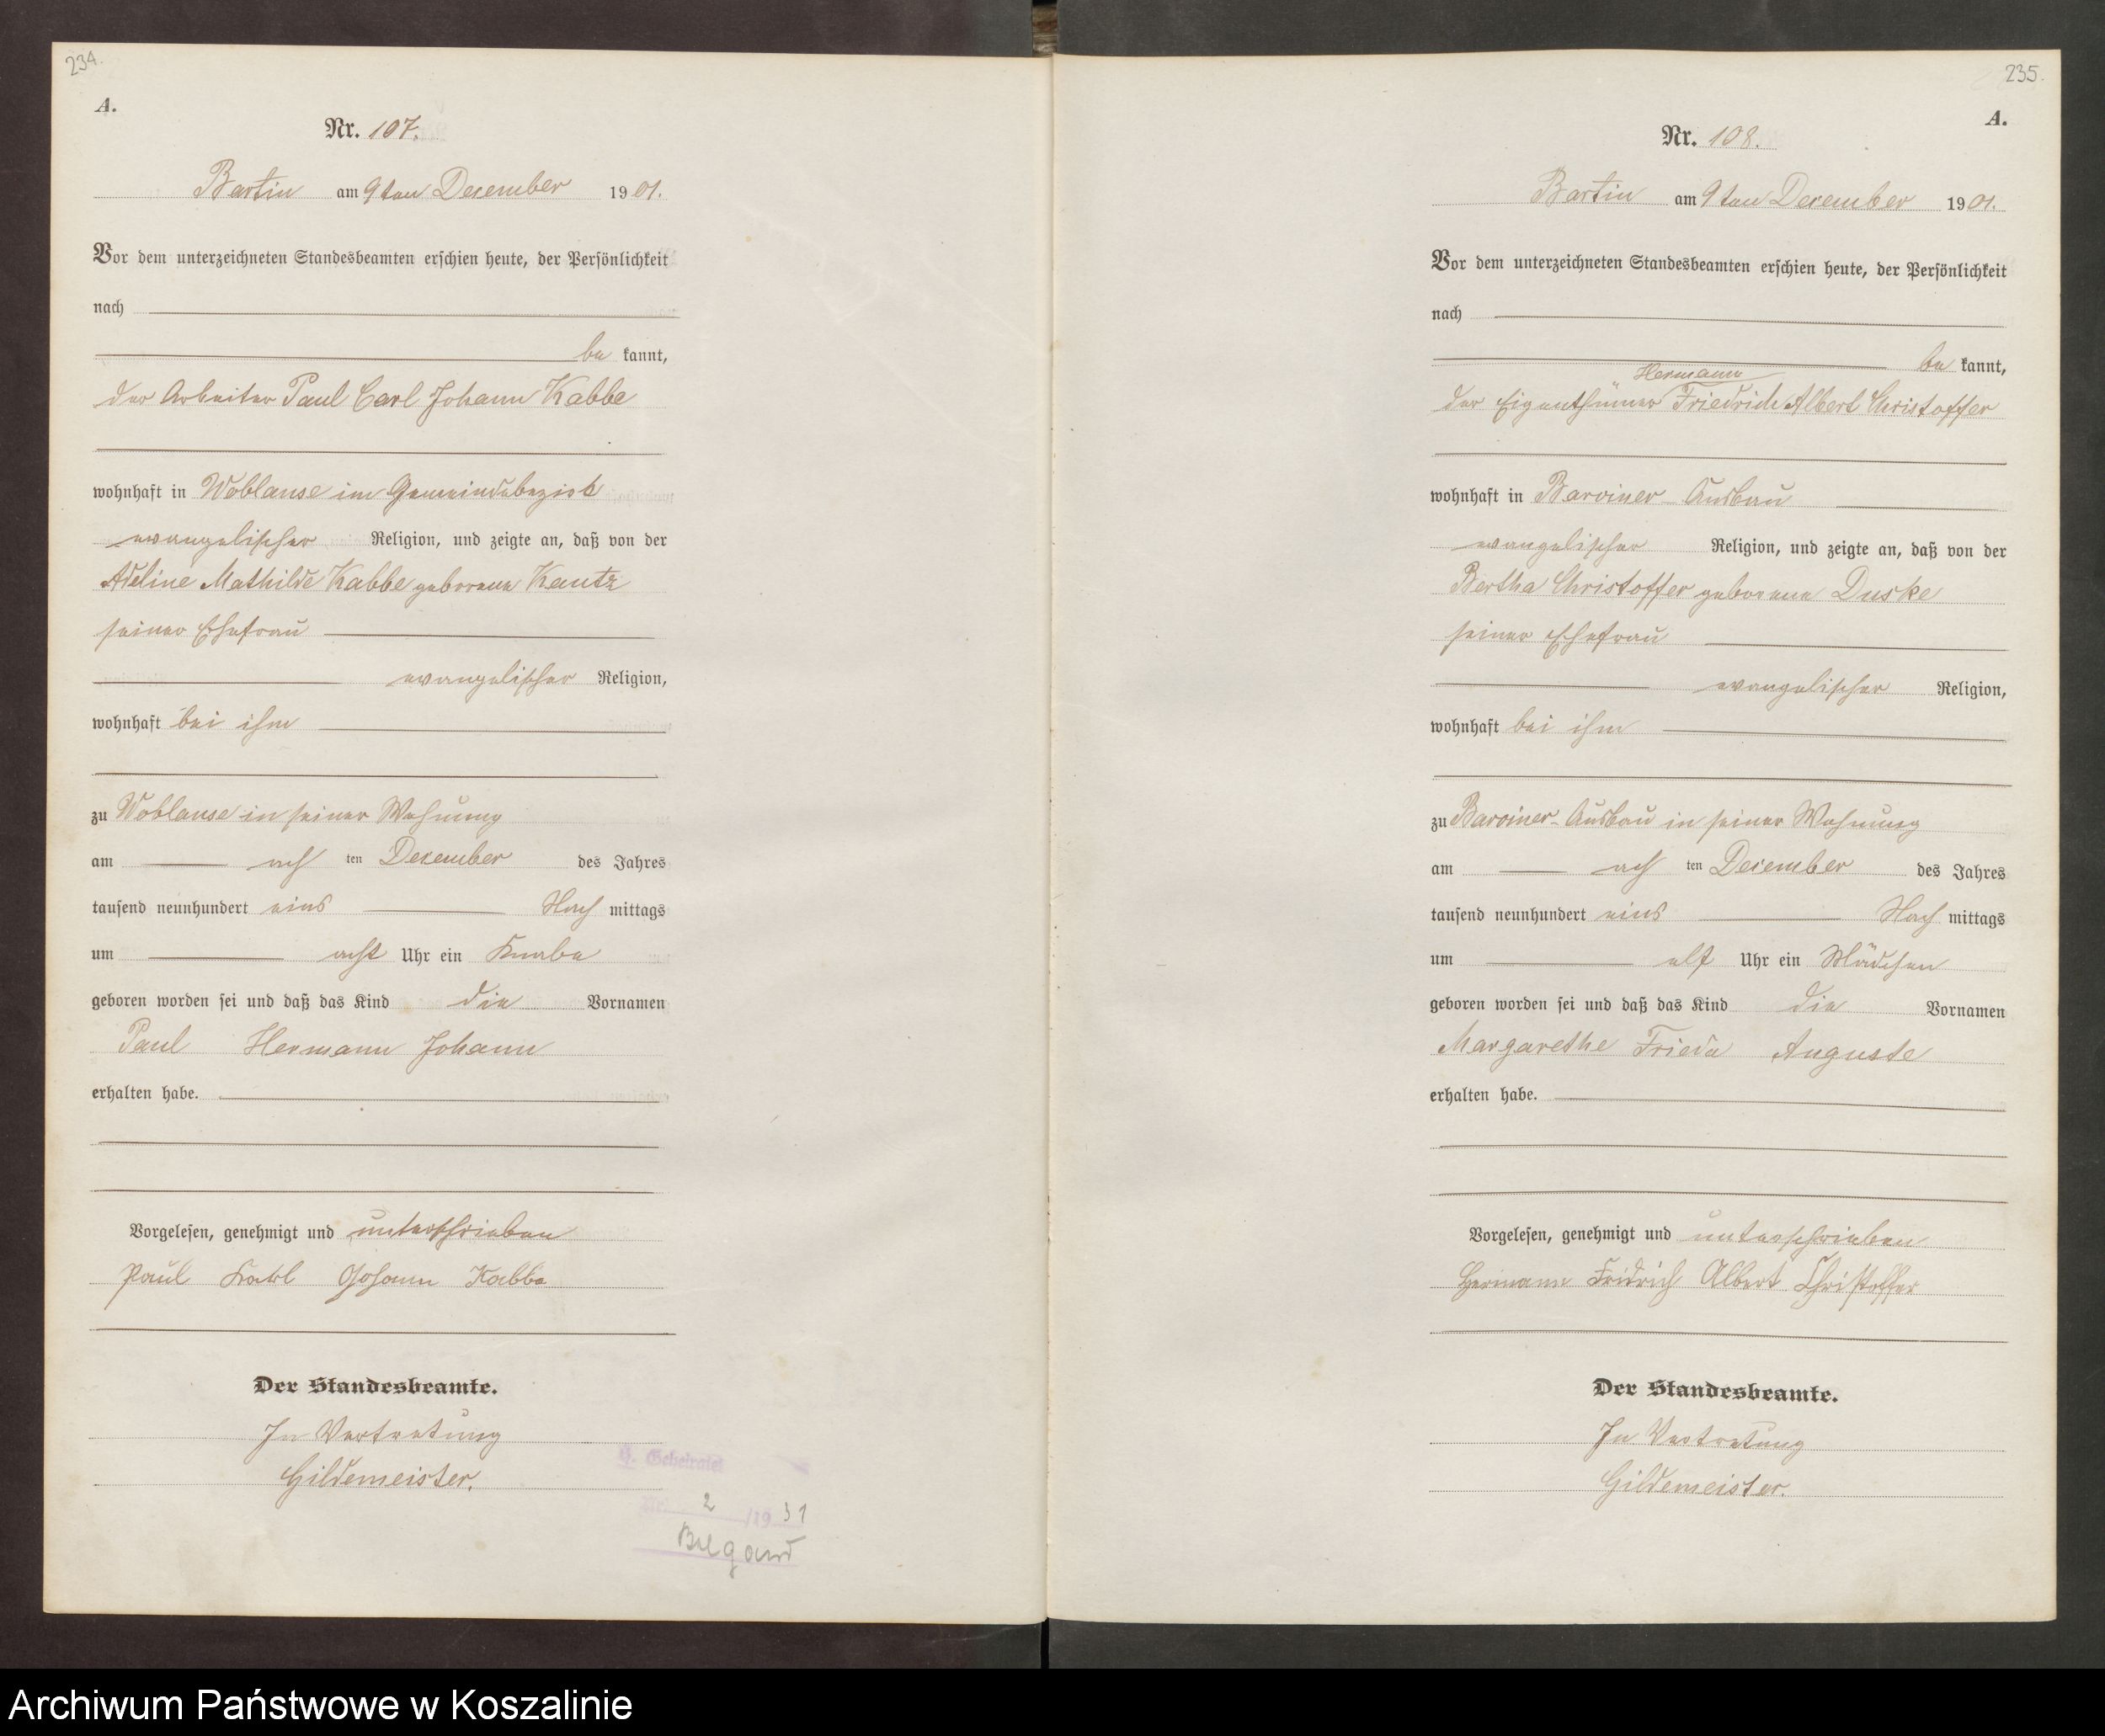 234.
A.
Nr. 107.
Bartin am 9ten December 1901.
Vor dem unterzeichneten Standesbeamten erschien heute, der Persönlichkeit
nach
be kannt,
der Arbeiter Paul Carl Johann Kabbe
wohnhaft in Woblanse im Gemeindebezirk
evangelischer Religion, und zeigte an, daß von der
Adeline Mathilde Kabbe geborene Kautz
seiner Ehefrau
evangelischer Religion,
wohnhaft bei ihm
zu Woblanse in seiner Wohnung
am ach ten December des Jahres
tausend neunhundert eins Nach mittags
um acht Uhr ein Knabe
geboren worden sei und daß das Kind die Vornamen
Paul Hermann Johann
erhalten habe.
Vorgelesen, genehmigt und unterschrieben
Paul Karl Johann Kabbe
Der Standesbeamte.
In Vertretung
Gildemeister.
G. Geheiratet
Nr. 2 /19 31
Belgard
235.
A.
Nr. 108.
Bartin am 9ten December 1901.
Vor dem unterzeichneten Standesbeamten erschien heute, der Persönlichkeit
nach
be kannt,
Hermann
der Eigenthümer Friedrich Albert Christoffer
wohnhaft in Barviner Ausbau
evangelischer Religion, und zeigte an, daß von der
Bertha Christoffer geborene Duske
seiner Ehefrau
evangelischer Religion,
wohnhaft bei ihm
zu Barviner-Ausbau in seiner Wohnung
am ach ten December des Jahres
tausend neunhundert eins Nach mittags
um elf Uhr ein Mädchen
geboren worden sei und daß das Kind die Vornamen
Margarethe Frieda Auguste
erhalten habe.
Vorgelesen, genehmigt und unterschrieben
Hermann Fridrich Albert Christoffer
Der Standesbeamte.
In Vertretung
Gildemeister.
Archiwum Państwowe w Koszalinie